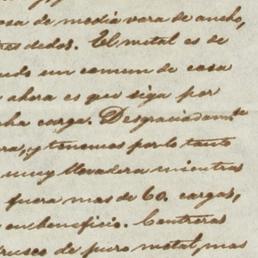 osa de media vara de ancho,
tres dedos. El metal es de
un comun de casa
ahora es que siga por
cha carga. Desgraciadamte
ra, y tenemos por lo tanto
muy llevadera mientras
fuera mas de 60. cargas,
en beneficio. Contreras
rusco de puro metal, mas